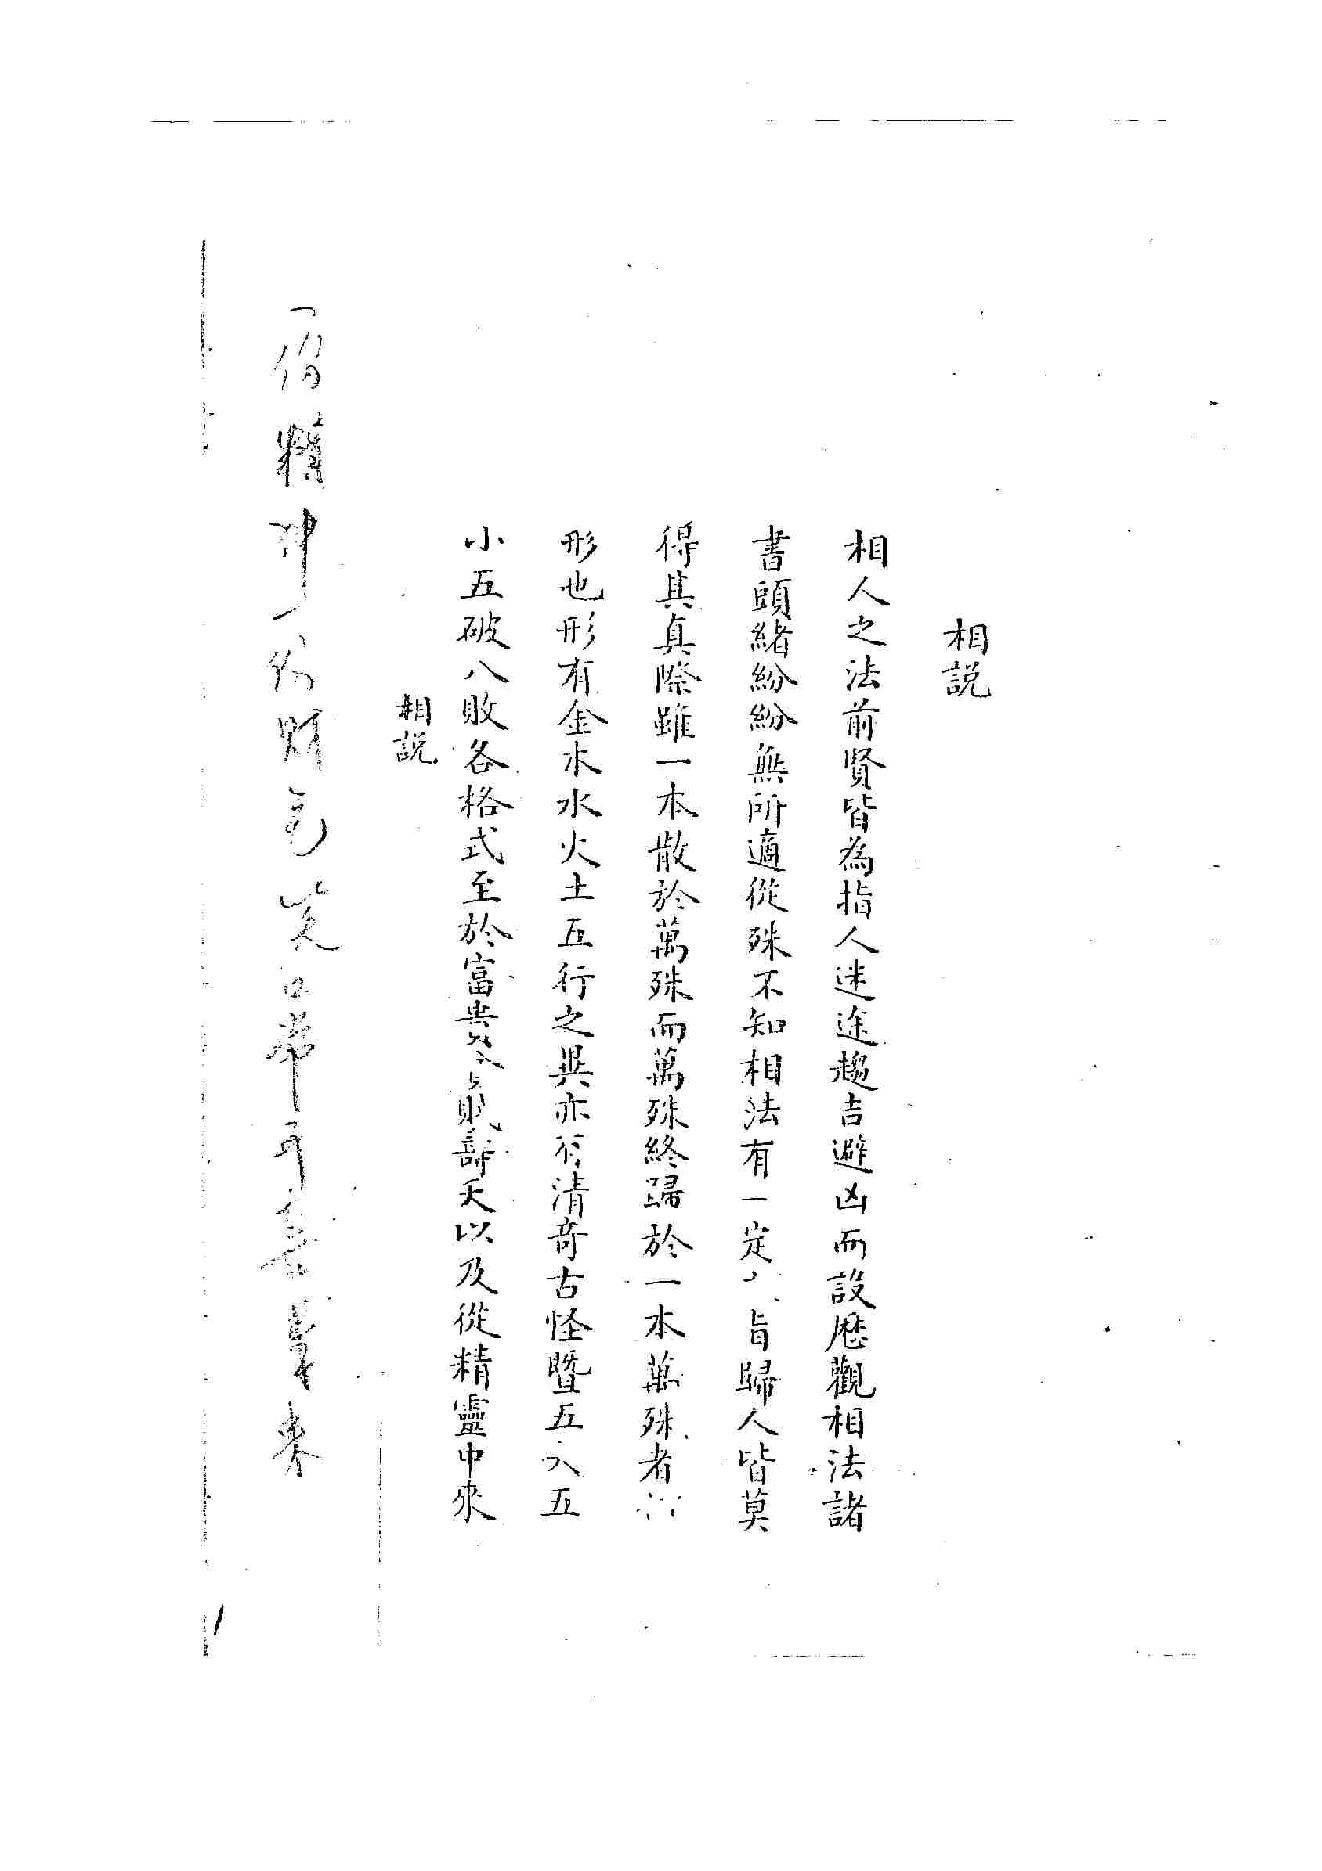 相説
相人之法前賢皆為指人迷途趨吉避凶而設歷觀相法諸
書頭緒紛紛無所適從殊不知相法有一定旨歸人皆莫
得其真際雖一本散於萬殊而萬殊終歸於一本萬殊者
形也形有金木水火土五行之異亦有清奇古怪暨五大五
小五破八敗各格式至於富貴賤壽夭以及從精靈中來
相説
一份精神一份財